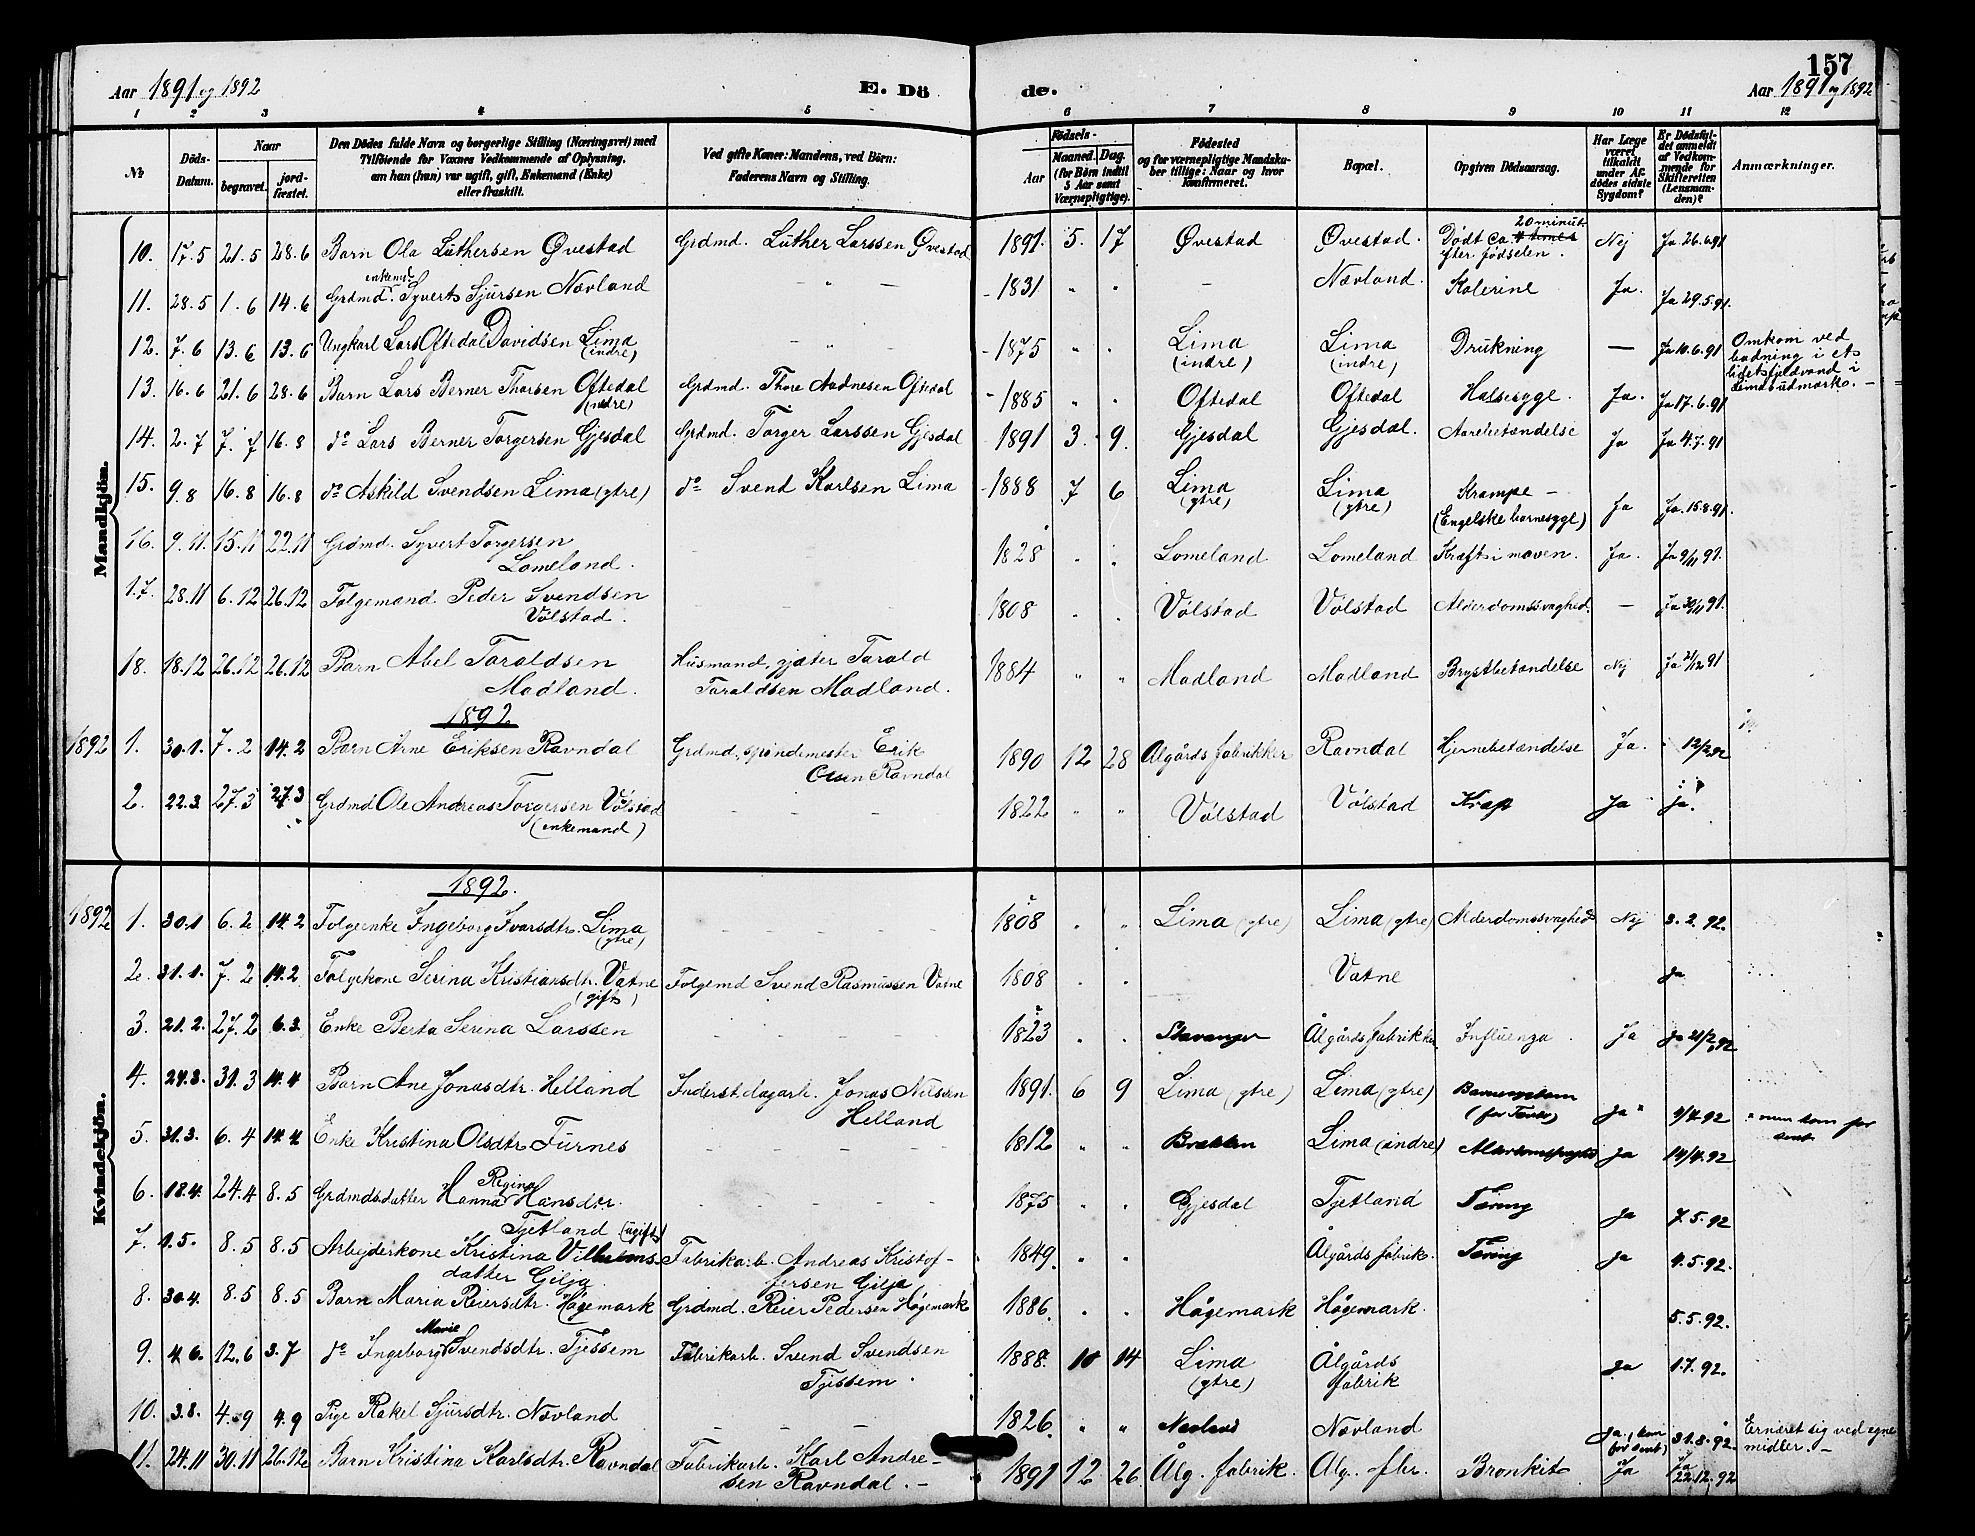 157
Aar 1891 og 1892 E. Dö de. Aar 1891 og 1892
1 2 3 4 5 6 7 8 9 10 11 12
No Döds-Datum. Naar begravet. jord-fæstet. Den Dödes fulde Navn og borgerlige Stilling (Næringsvei) med Tilföiende for Voxnes Vedkommende af Oplysning, om han (hun) var ugift, gift, Enkemand (Enke) eller fraskilt. Ved gifte Koner: Mandens, ved Börn: Faderens Navn og Stilling. Födsels- Aar Maaned. Dag. (for Börn indtil 5 Aar samt Værnepligtige). Födested og for værnepligtige Mandskaber tillige: Naar og hvor konfirmeret. Bopæl. Opgiven Dödsaarsag. Har Læge været tilkaldt under Afdödes sidste Sygdom? Er Dödsfaldet anmeldt af Vedkommende for Skifteretten (Lensmanden)? Anmærkninger.
Mandkjön.
10. 17.5 21.5 28.6 Barn Ola Luthersen Øvestad Grdmd. Luther Larssen Øvestad 1891. 5. 17 Øvestad Øvestad. Dødt ca. 20 minut. efter fødselen. Nej Ja 26.6.91
11. 28.5 1.6 14.6 Grdmd. enkemd. Syvert Sjursen Nævland - " - 1831 " " - Nævland. Kolerine Ja. Ja 29.5.91.
12. 7.6 13.6 13.6 Ungkarl Lars Oftedal Davidsen Lima (indre) - " - 1875 " " Lima (indre) Lima (indre) Drukning — Ja 10.6.91 Omkom ved badning i et lidet fjeldvand i Limas udmark. -
13. 16.6 21.6 28.6 Barn Lars Berner Thorsen Oftedal (indre) Grdmd. Thore Aadnesen Oftedal 1885 " " Oftedal Oftedal Halssyge. Ja. Ja 17.6.91
14. 2.7 7.7 16.8 do Lars Berner Torgersen Gjesdal Grdmd. Torger Larssen Gjesdal 1891 3. 9. Gjesdal Gjesdal. Aarebetændelse Ja Ja 4.7.91
15. 9.8 16.8 16.8 do Askild Svendsen Lima (ytre) do Svend Karlsen Lima 1888 7 6 Lima (ytre) Lima (ytre) Krampe - (Engelske barnesyge) Ja Ja. 15.8.91.
16. 9.11. 15.11 22.11 Grdmd. Syvert Torgersen Lomeland. 1828 " " Lomeland Lomeland Kræft i maven. Ja. Ja 9/11 91.
17. 28.11 6.12 26.12 Folgemand. Peder Svendsen Vølstad. - - - 1808 " " Vølstad Vølstad Alderdomssvaghed. — Ja 30/11 91.
18. 18.12 26.12 26.12 Barn Abel Taraldsen Madland. Husmand, gjæter Tarald Taraldsen Madland. 1884 " " Madland Madland Brystbetændelse Nej Ja 21/12 91
1892
1892 1. 30.1. 7.2 14.2 Barn Arne Eriksen Ravndal Grdmd., spindemester Erik Osen Ravndal 1890 12 28 Ålgårds fabrikker Ravndal Hjernebetændelse Ja. " 12/2 92
2. 22.3. 27.3 27.3 Grdmd. Ole Andreas Torgersen Vølstad (enkemand) - - - 1822 " " Vølstad Vølstad Kræft Ja ja.
Kvindekjön.
1892.
1892 1. 30.1 6.2 14.2 Folgeenke Ingeborg Ivarsdtr. Lima (ytre) - - - 1808 " " Lima (ytre) Lima (ytre) Alderdomssvaghed Nej 3.2.92.
2. 31.1. 7.2 14.2 Folgekone Serina Kristiansdtr. Vatne (gift) Folgemd Svend Rasmussen Vatne 1808 " " Vatne ja
3. 21.2. 27.2 6.3. Enke Berta Serina Larssen 1823 " " Stavanger Ålgårds fabrikker. Influenza. Ja ja 21/2 92
4. 24.3. 31.3 14.4 Barn Ane Jonasdtr. Helland Inderst. dagarb. Jonas Nilssen Helland 1891. 6 9 Lima (ytre) Lima (ytre) ja " 1/4.92 " men kom for sent
5. 31.3. 6.4 14.4. Enke Kristina Olsdtr. Furnes - - - 1812 " " Brekken Lima (indre) ja 14/4.92
6. 18.4. 24.4 8.5 Grdmdsdatter Hanna Regina Hansdtr. Tjetland (ugift) - - - 1875 " " Gjesdal Tjetland Tæring ja 7.5.92
7. 1.5. 8.5 8.5 Arbejderkone Kristina Vilhelmsdatter Gilja Fabrikarb. Andreas Kristoffersen Gilja 1849. " " Ålgårds fabrik. Tæring ja 4.5.92.
8. 30.4. 8.5 8.5 Barn Maria Reiersdtr. Høgemark Grdmd. Reier Pedersen Høgemark 1886. " " Høgemark Høgemark. 5.5.92.
9. 4.6. 12.6 3.7 do Ingeborg Marie Svendsdtr. Tjessem Fabrikarb. Svend Svendsen Tjessem. 1888. 10 14 Lima (ytre) Ålgårds fabrik ja 1.7.92.
10. 3.8. 4.9 4.9 Pige Rakel Sjursdtr. Nævland - - - 1826. " " Nævland Nævland Ja, (kom for sent) 31.8.92. Ernæret sig ved egne midler. -
11. 24.11 30.11 26.12 Barn Kristina Karlsdtr. Ravndal Fabrikarb. Karl Andresen Ravndal. - 1891 12 26 Ålg. fabrik. Ålg. fbr. Bronkit Ja Ja 22.12.92